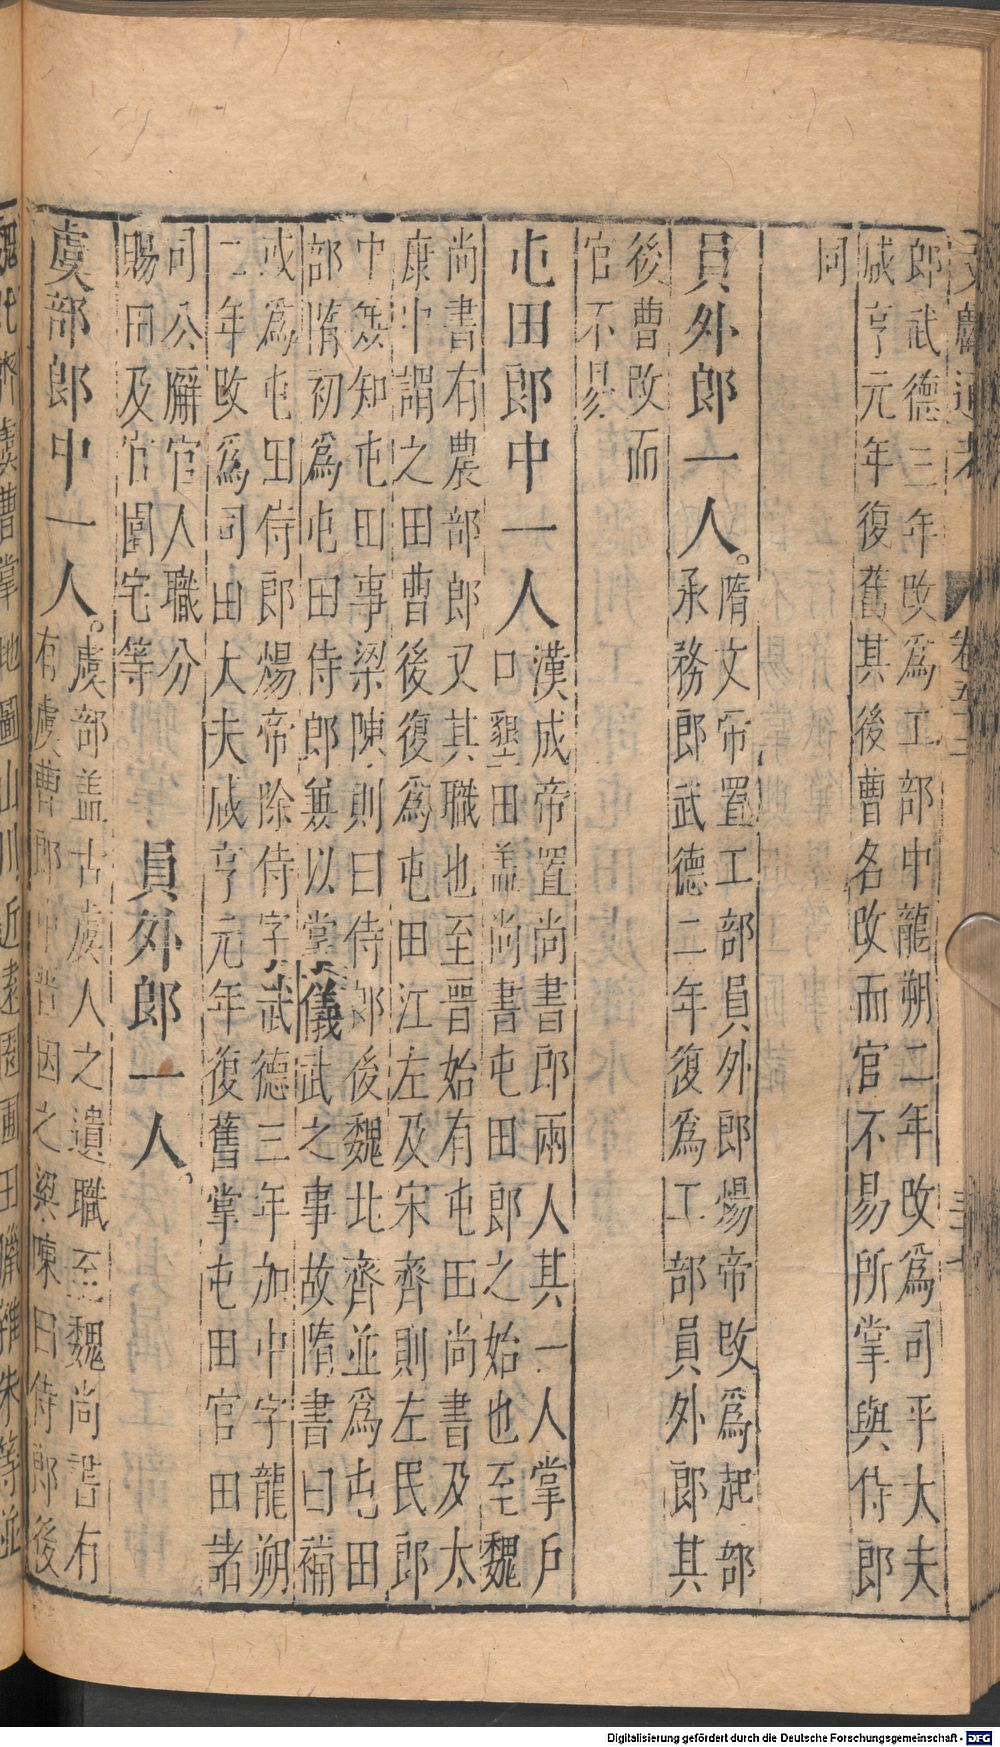 文獻通考 卷五十二
郎武德三年改爲工部中龍朔二年改爲司平大夫
咸亨元年復舊其後曹名改而官不易所掌與侍郎
同
員外郎一人。隋文帝置工部員外郎煬帝改爲起部
承務郎武德二年復爲工部員外郎其
後曹改而
官不易
屯田郎中一人漢成帝置尚書郎兩人其一人掌戶
口墾田盖尚書屯田郎之始也至魏
尚書有農部郎又其職也至晋始有屯田尚書及太
康中謂之田曹後復爲屯田江左及宋齊則左民郎
中兼知屯田事梁陳則曰侍郎後魏北齊並爲屯田
部隋初爲屯田侍郎兼以掌儀武之事故隋書曰補
戎爲屯田侍郎煬帝除侍字武德三年加中字龍朔
二年改爲司田大夫咸亨元年復舊掌屯田官田諸
司公廨官人職分
賜田及官園宅等
員外郎一人。
虞部郎中一人。虞部盖古虞人之遺職至魏尚書有
有虞曹郎中晋因之梁陳曰侍郎後
魏北齊虞曹掌地圖山川近遠園囿田獵雜朱等並
Digitalisierung gefördert durch die Deutsche Forschungsgemeinschaft - DFG